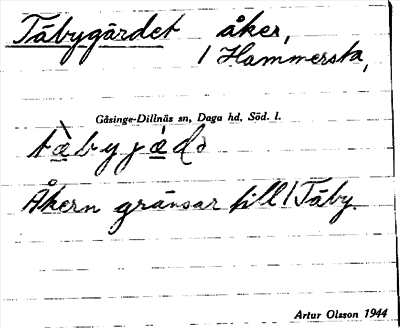 Täbygärdet åker,
1 Hammersta,
Gåsinge-Dillnäs sn, Daga hd, Söd. l.
tæ̀byjæ̀ɖə
Åkern gränsar till 1 Täby.
Artur Olsson 1944